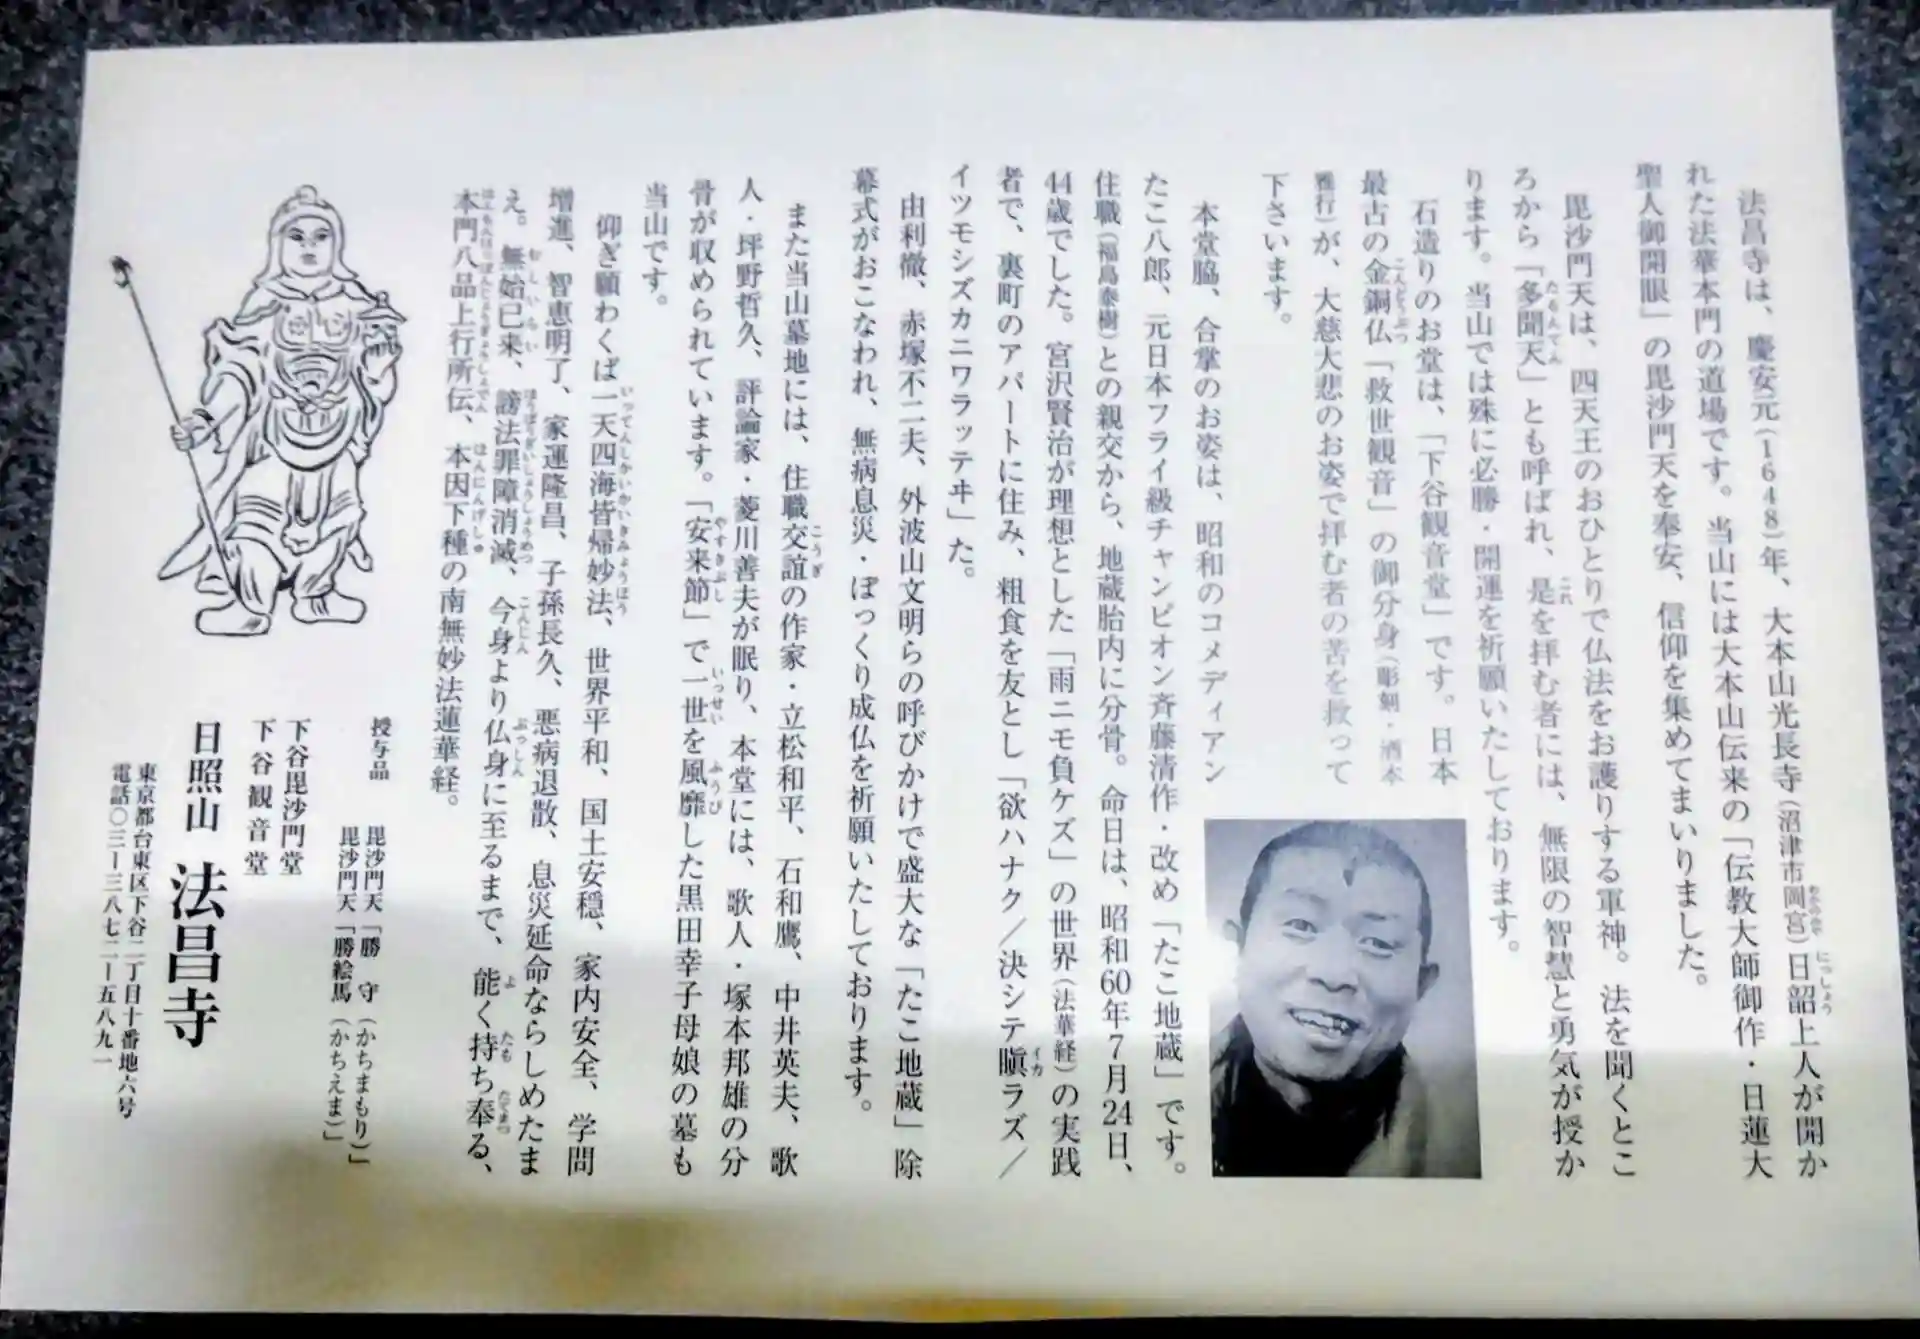 法昌寺は、慶安元(1648)年、大本山光長寺(沼津市岡宮)日韶上人が開か
れた法華本門の道場です。当山には大本山伝来の「伝教大師御作・日蓮大
聖人御開眼」の毘沙門天を奉安、信仰を集めてまいりました。
毘沙門天は、四天王のおひとりで仏法をお護りする軍神。法を聞くとこ
ろから「多聞天」とも呼ばれ、是を拝む者には、無限の智慧と勇気が授か
ります。当山では殊に必勝・開運を祈願いたしております。
石造りのお堂は、「下谷観音堂」です。日本
最古の金銅仏「救世観音」の御分身(彫刻・酒本
雅行)が、大慈大悲のお姿で拝む者の苦を救って
下さいます。
本堂脇、合掌のお姿は、昭和のコメディアン
たこ八郎、元日本フライ級チャンピオン斉藤清作・改め「たこ地蔵」です。
住職(福島泰樹)との親交から、地蔵胎内に分骨。命日は、昭和60年7月24日、
44歳でした。宮沢賢治が理想とした「雨ニモ負ケズ」の世界(法華経)の実践
者で、裏町のアパートに住み、粗食を友とし「欲ハナク/決シテ瞋ラズ/
イツモシズカニワラッテヰ」た。
由利徹、赤塚不二夫、外波山文明らの呼びかけで盛大な「たこ地蔵」除
幕式がおこなわれ、無病息災・ぽっくり成仏を祈願いたしております。
また当山墓地には、住職交誼の作家・立松和平、石和鷹、中井英夫、歌
人・坪野哲久、評論家・菱川善夫が眠り、本堂には、歌人・塚本邦雄の分
骨が収められています。「安来節」で一世を風靡した黒田幸子母娘の墓も
当山です。
仰ぎ願わくば一天四海皆帰妙法、世界平和、国土安穏、家内安全、学問
増進、智恵明了、家運隆昌、子孫長久、悪病退散、息災延命ならしめたま
え。無始已来、謗法罪障消滅、今身より仏身に至るまで、能く持ち奉る、
本門八品上行所伝、本因下種の南無妙法蓮華経。
授与品 毘沙門天「勝 守(かちまもり)」
毘沙門天「勝絵馬(かちえま)」
下谷毘沙門堂
下谷観音堂
日照山 法昌寺
東京都台東区下谷二丁目十番地六号
電話〇三ー三八七二ー五八九一